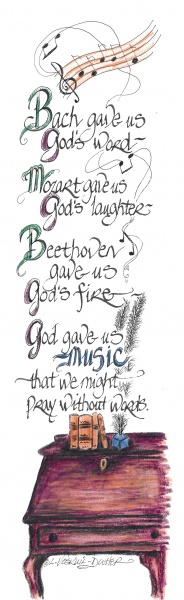 Bach gave us
God's word~
Mozart gave us
God's laughter~
Beethoven
gave us
God's fire~
God gave us
MUSIC
that we might
pray without words.